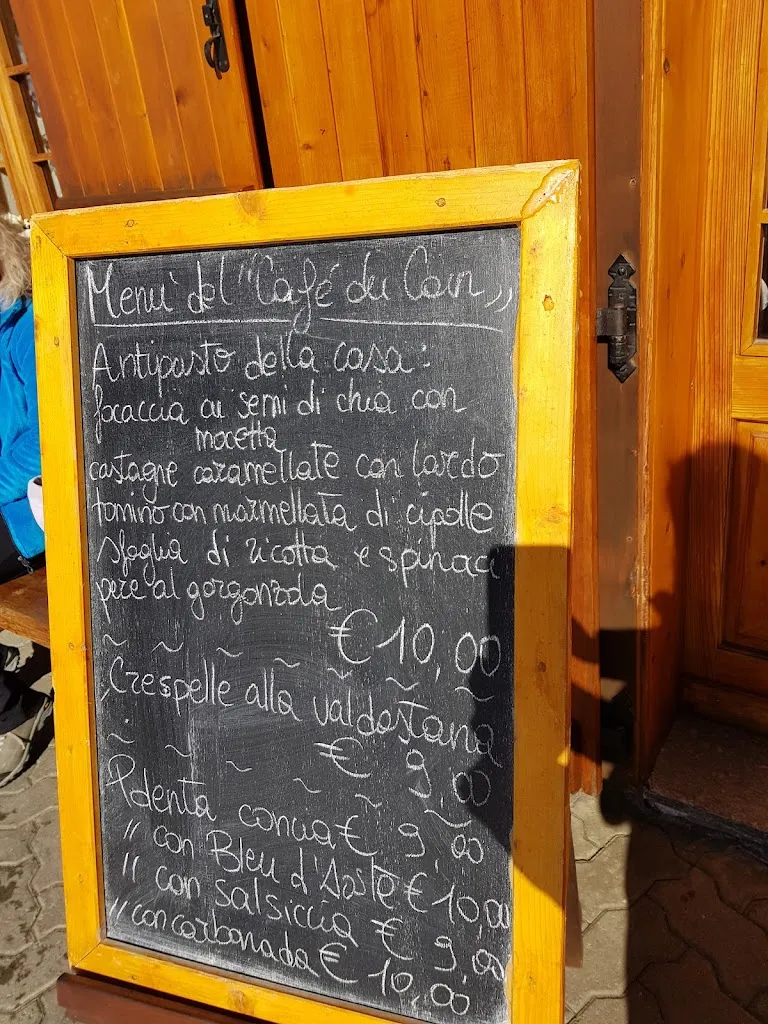 Menu' del "Café du Coin"
Antipasto della casa:
focaccia ai semi di chia con
mocetta
castagne caramellate con lardo
tomino con marmellata di cipolle
sfoglia di ricotta e spinaci
pere al gorgonzola
€ 10,00
~ ~ ~ ~ ~ ~ ~
Crespelle alla valdostana
€ 9,00
~ ~ ~ ~ ~ ~
Polenta concia € 9,00
" con Bleu d'Aoste € 10,00
" con salsiccia € 9,00
" con carbonada € 10,00